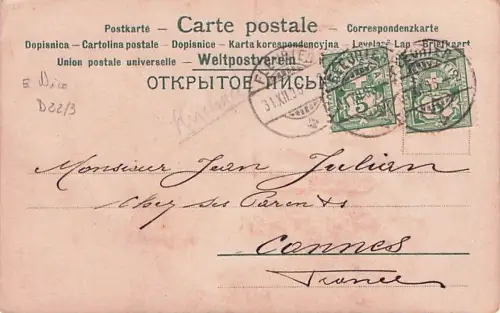 Postkarte – Carte postale – Correspondenzkarte
Dopisnica – Cartolina postale – Dopisnice – Karta korespondencyjna – Levelező Lap – Briefkaart
Union postale universelle – Weltpostverein –
ОТКРЫТОЕ ПИСЬ
D22/3
31.XII.
5
Monsieur Jean Julian
Chez ses Parents
Cannes
France